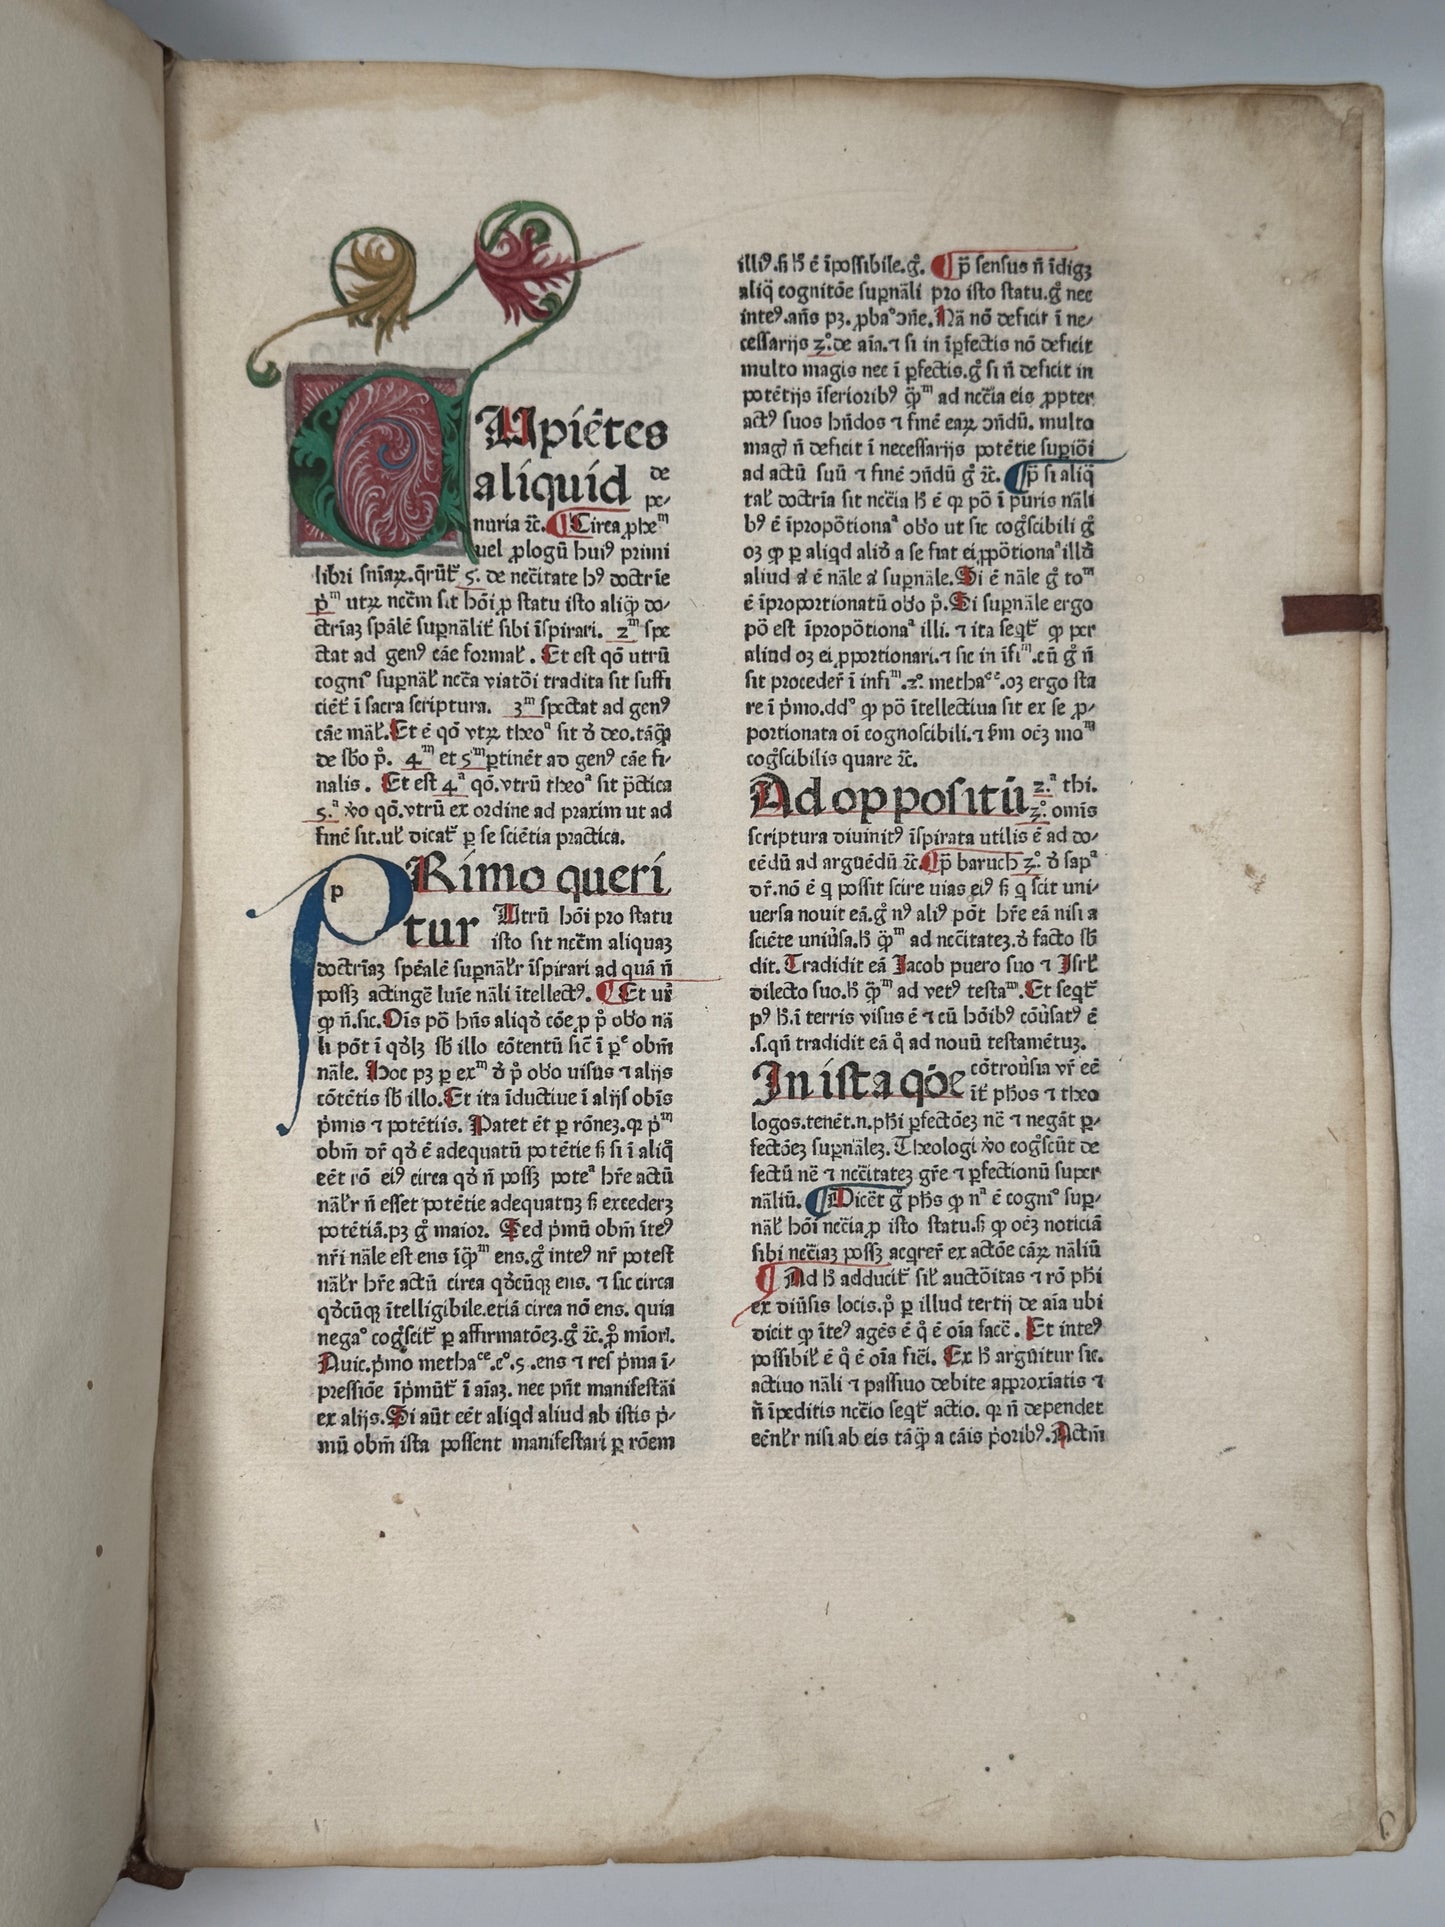 CUpiētes
aliquid de
pe⸗
nuria ⁊c̄. Circa ꝓheͫ
uel ꝓlogū huiꝰ primi
libri sn̄iaꝝ.q̄rūt̄ 5. de nec̄itate hꝰ doctrīe
p̄ͫ utꝝ ncc̄m sit hōi ꝓ statu isto aliꝙ̄ do⸗
ctrīaꝫ spālē suꝑnālit̄ sibi īspirari. 2ͫ spe
ctat ad genꝰ cāe formal̄. Et est qō utrū
cogniº suꝑnāl̄ ncc̄a viatōi tradita sit suffi
ciēt̄ ī sacra scriptura. 3ͫ spectat ad genꝰ
cāe māl̄. Et ē qō vtꝝ theoª sit ð deo.tāꝙ̄
de sb̄o p̊. 4ͫ et 5ͫ ꝑtinēt ad genꝰ cāe fi⸗
nalis. Et est 4ª qō.vtrū theoª sit p̄ctica
5.ª v̊o qō.vtrū ex ordine ad praxim ut ad
finē sit.ul̄ dicat̄ ꝑ se sciētia practica.
PRimo queri
p
tur Utrū hōi pro statu
isto sit ncc̄m aliquaꝫ
doctrīaꝫ spēalē suꝑnāl̄r īspirari ad quā n̄
possꝫ actingē luīe nāli ītellectꝰ. Et ur̄
ꝙ n̄.sic. Oīs pō hn̄s aliqð cōe ꝓ p̊ ob̊o nā
li pōt ī qðlꝫ sb̄ illo cōtentū sic̄ ī pͤ obm̄
nāle. Hoc pꝫ ꝑ exͫ ð p̊ ob̊o uisus ⁊ alijs
cōtētis sb̄ illo. Et ita īductiue ī alijs obīs
p̄mis ⁊ potētiis. Patet ēt ꝑ rōneꝫ.qꝛ p̄ͫ
obm̄ dr̄ qð ē adequatū potētie ß si ī aliq̊
eēt rō eiꝰ circa qð n̄ possꝫ poteª hr̄e actū
nāl̄r n̄ esset potētie adequatuꝫ ß excederꝫ
potētiā.pꝫ g̊ maior. Sed p̄mū obm̄ īteꝰ
nr̄i nāle est ens īꝙ̄ͫ ens.g̊ inteꝰ nr̄ potest
nāl̄r hr̄e actū circa qðcūqꝫ ens. ⁊ sic circa
qðcūqꝫ ītelligibile.etiā circa nō ens. quia
negaº cog̊scit̄ ꝑ affirmatōeꝫ.g̊ ⁊c̄.ꝓ̊ miori.
Auic.p̄mo methaͨͤ.cº.5.ens ⁊ res p̄ma ī⸗
pressiōe īp̄mūt̄ ī aīaꝫ. nec pn̄t manifestāi
ex alijs. Si aūt eēt aliqd aliud ab istis p̄⸗
mū obm̄ ista possent manifestari ꝑ rōem
illiꝰ.ß h̄ ē īpossibile.g̊. p̄ sensus n̄ īdigꝫ
aliq̄ cognitōe suꝑnāli pro isto statu.g̊ nec
inteꝰ.an̄s pꝫ. ꝓbaºↄn̄e. Nā nō deficit ī ne⸗
cessarijs 3º.de aīa.⁊ si in īꝑfectis nō deficit
multo magis nec ī ꝑfectis.g̊ si n̄ deficit in
potētijs īferioribꝰ ꝙ̄ͫ ad ncc̄ia eis ꝓpter
actꝰ suos hn̄dos ⁊ finē eaꝝ ↄn̄dū. multo
magꝭ n̄ deficit ī necessarijs potētie supiōi
ad actū suū ⁊ finē ↄn̄dū g̊ ⁊c̄. p̄ si aliq̄
tal̄ doctrīa sit ncc̄ia h̄ ē qꝛ pō ī puris nāli
bꝰ ē īpropōtionaª ob̊o ut sic cog̊scibili g̊
oꝫ ꝙ ꝑ aliqd alið a se fiat ei ꝓpōtionaª illð
aliud aͧ ē nāle aͧ suꝑnāle. Si ē nāle g̊ toͫ
ē īproportionatū ob̊o p̊. Si supnāle ergo
pō est īpropōtionaª illi. ⁊ ita seqt̄ ꝙ per
aliud oꝫ ei ꝓportionari.⁊ sic in īfiͫ.cū g̊ n̄
sit proceder̄ ī infiͫ.2º. methaͨͤ.oꝫ ergo sta
re ī p̄mo.ddº ꝙ pō ītellectiua sit ex se ꝓ⸗
portionata oī cognoscibili.⁊ ẜm oēꝫ moͫ
cog̊scibilis quare ⁊c̄.
Ad oppositū 2.ª thi.
3º. omīs
scriptura diuinitꝰ īspirata utilis ē ad do⸗
cēdū ad arguēdū ⁊c̄. p̄ baruch 3º. ð sapª
dr̄.nō ē q possit scire uias eiꝰ ß q scit uni⸗
uersa nouit eā.g̊ nꝰ aliꝰ pōt hr̄e eā nisi a
sciēte uniu̓sa.h̄ ꝙ̄ͫ ad nec̄itateꝫ.ð facto sb̄
dit. Tradidit eā Jacob puero suo ⁊ Isrl̄
dilecto suo.h̄ ꝙ̄ͫ ad vetꝰ testaͫ. Et seqt̄
pꝰ h̄.ī terris visus ē ⁊ cū hōibꝰ cōu̓satꝰ ē
.s.qn̄ tradidit eā q̊ ad nouū testamētuꝫ.
In ista qōe cōtrou̓sia vr̄ eē
īt̄ ph̄os ⁊ theo
logos.tenēt.n.ph̄i ꝑfectōeꝫ nē ⁊ negāt ꝑ⸗
fectōeꝫ suꝑnāleꝫ. Theologi v̊o cog̊scūt de
fectū nē ⁊ ncc̄itateꝫ gr̄e ⁊ ꝑfectionū super
nāliū. Dicēt g̊ ph̄s ꝙ nª ē cogniº suꝑ⸗
nāl̄ hōi ncc̄ia ꝓ isto statu.ß ꝙ oēꝫ noticiā
sibi ncc̄iaꝫ possꝫ acqrer̄ ex actōe cāꝝ nāliū
Ad h̄ adducit̄ sil̄ auctōitas ⁊ rō ph̄i
ex diu̓sis locis.p̊ ꝑ illud tertij de aīa ubi
dicit ꝙ īteꝰ agēs ē q̊ ē oīa facē. Et inteꝰ
possibil̄ ē q̊ ē oīa fiēi. Ex h̄ arguitur sic.
actiuo nāli ⁊ passiuo debite approxīatis ⁊
n̄ īpeditis ncc̄io seqt̄ actio. qꝛ n̄ dependet
eēnl̄r nisi ab eis tāꝙ̄ a cāis p̄oribꝰ. Actm̄